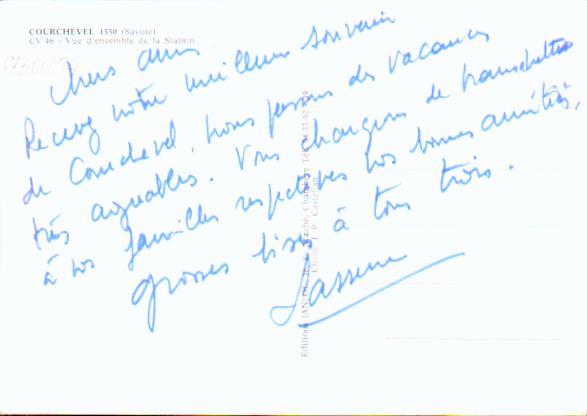 COURCHEVEL 1550 (Savoie)
CV 46 - Vue d'ensemble de la Station
Chers amis
Recevez notre meilleur souvenir
de Courchevel. Nous passons des vacances
très agréables. Vous chargeons de transmettre
à vos familles respectives nos bonnes amitiés,
grosses bises à tous trois.
Editions
Chambéry Tél.
Cliché J. P. Castelan